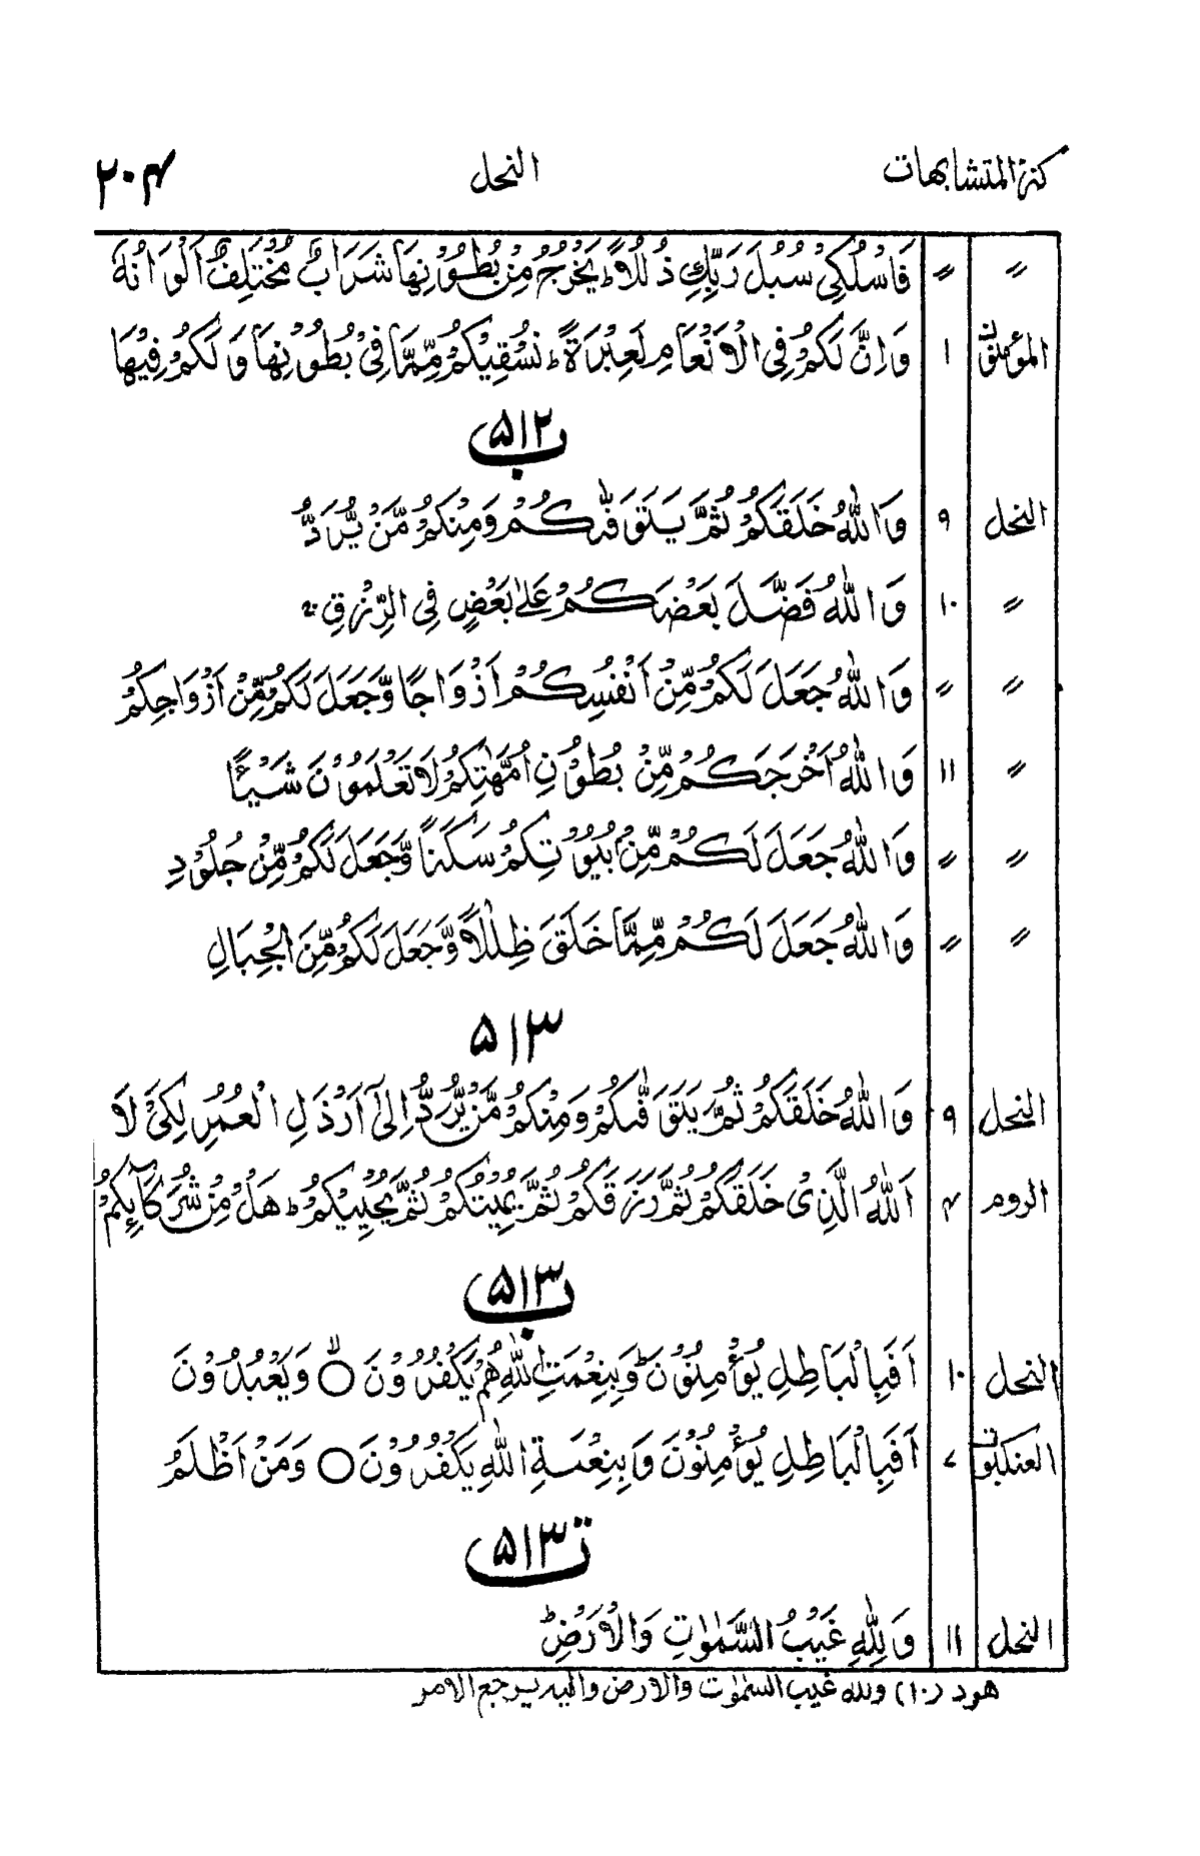 كنز المتشابهات النحل ٢٠٤
〃 〃 فَاسْلُكِیْ سُبُلَ رَبِّكِ ذُلُلًا ؕ یَخْرُجُ مِنْۢ بُطُوْنِهَا شَرَابٌ مُّخْتَلِفٌ اَلْوَانُهٗ
المؤمنون ١ وَاِنَّ لَكُمْ فِی الْاَنْعَامِ لَعِبْرَةً ؕ نُسْقِیْكُمْ مِّمَّا فِیْ بُطُوْنِهَا وَلَكُمْ فِیْهَا
٥١٢ ب
النحل ٩ وَاللّٰهُ خَلَقَكُمْ ثُمَّ یَتَوَفّٰىكُمْ وَمِنْكُمْ مَّنْ یُّرَدُّ
〃 ١٠ وَاللّٰهُ فَضَّلَ بَعْضَكُمْ عَلٰى بَعْضٍ فِی الرِّزْقِ ۚ
〃 〃 وَاللّٰهُ جَعَلَ لَكُمْ مِّنْ اَنْفُسِكُمْ اَزْوَاجًا وَّجَعَلَ لَكُمْ مِّنْ اَزْوَاجِكُمْ
〃 ١١ وَاللّٰهُ اَخْرَجَكُمْ مِّنْۢ بُطُوْنِ اُمَّهٰتِكُمْ لَا تَعْلَمُوْنَ شَیْـًٔا
〃 〃 وَاللّٰهُ جَعَلَ لَكُمْ مِّنْۢ بُیُوْتِكُمْ سَكَنًا وَّجَعَلَ لَكُمْ مِّنْ جُلُوْدِ
〃 〃 وَاللّٰهُ جَعَلَ لَكُمْ مِّمَّا خَلَقَ ظِلٰلًا وَّجَعَلَ لَكُمْ مِّنَ الْجِبَالِ
٥١٣
النحل ٩ وَاللّٰهُ خَلَقَكُمْ ثُمَّ یَتَوَفّٰىكُمْ وَمِنْكُمْ مَّنْ یُّرَدُّ اِلٰۤى اَرْذَلِ الْعُمُرِ لِكَیْ لَا
الروم ٤ اَللّٰهُ الَّذِیْ خَلَقَكُمْ ثُمَّ رَزَقَكُمْ ثُمَّ یُمِیْتُكُمْ ثُمَّ یُحْیِیْكُمْ ؕ هَلْ مِنْ شُرَكَآئِكُمْ
٥١٣ ب
النحل ١٠ اَفَبِالْبَاطِلِ یُؤْمِنُوْنَ وَبِنِعْمَتِ اللّٰهِ هُمْ یَكْفُرُوْنَ ۙ○ وَیَعْبُدُوْنَ
العنكبوت ٧ اَفَبِالْبَاطِلِ یُؤْمِنُوْنَ وَبِنِعْمَةِ اللّٰهِ یَكْفُرُوْنَ ○ وَمَنْ اَظْلَمُ
٥١٣ ت
النحل ١١ وَلِلّٰهِ غَیْبُ السَّمٰوٰتِ وَالْاَرْضِ ؕ
هود (١٠) ولله غیب السمٰوٰت والارض والیه یرجع الامر